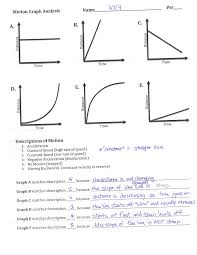 Motion Graph Analysis Name KEY Per
A. B. C.
Distance Distance Distance
Time Time Time
D. E. F.
Distance Distance Distance
Time Time Time
Descriptions of Motion
1. Acceleration
2. Constant Speed (high rate of speed)
3. Constant Speed (low rate of speed)
4. Negative Acceleration (deceleration)
5. No Motion (stopped)
6. Moving Backwards (constant velocity of reverse)
"constant" = straight line
Graph A matches description 5 because the distance is not changing
Graph B matches description 2 because the slope of the line is steep
Graph C matches description 6 because distance is decreasing as time goes on
Graph D matches description 1 because the line starts off "slow" and rapidly increases
Graph E matches description 4 because starts of fast and then levels off
Graph F matches description 3 because the slope of the line is NOT steep